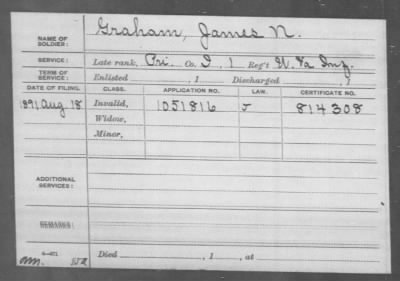 NAME OF SOLDIER: Graham, James N.
SERVICE: Late rank, Pri. Co. I, 1 Reg't W. Va Inf.
TERM OF SERVICE: Enlisted , 1 Discharged , 1
DATE OF FILING. CLASS. APPLICATION NO. LAW. CERTIFICATE NO.
1891 Aug 18 Invalid, 1051816 J 814308
Widow,
Minor,
ADDITIONAL SERVICES:
REMARKS:
Died , 1 , at